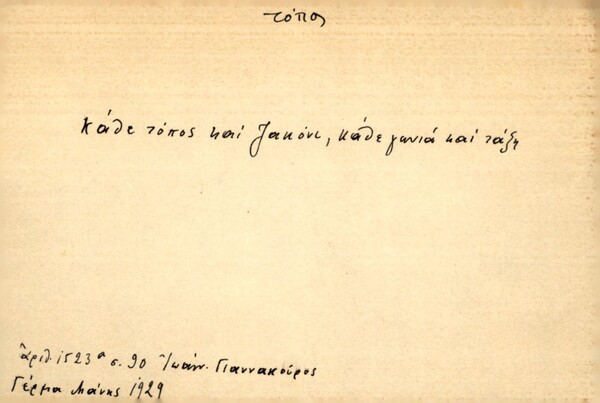 τόπος
κάθε τόπος καί ζακόνι, κάθε γωνιά καί τάξη
Ἀριθ. 1523α σ. 90 Ἰωάν. Γιαννακοῦρος
Γέρμα Μάνης 1929